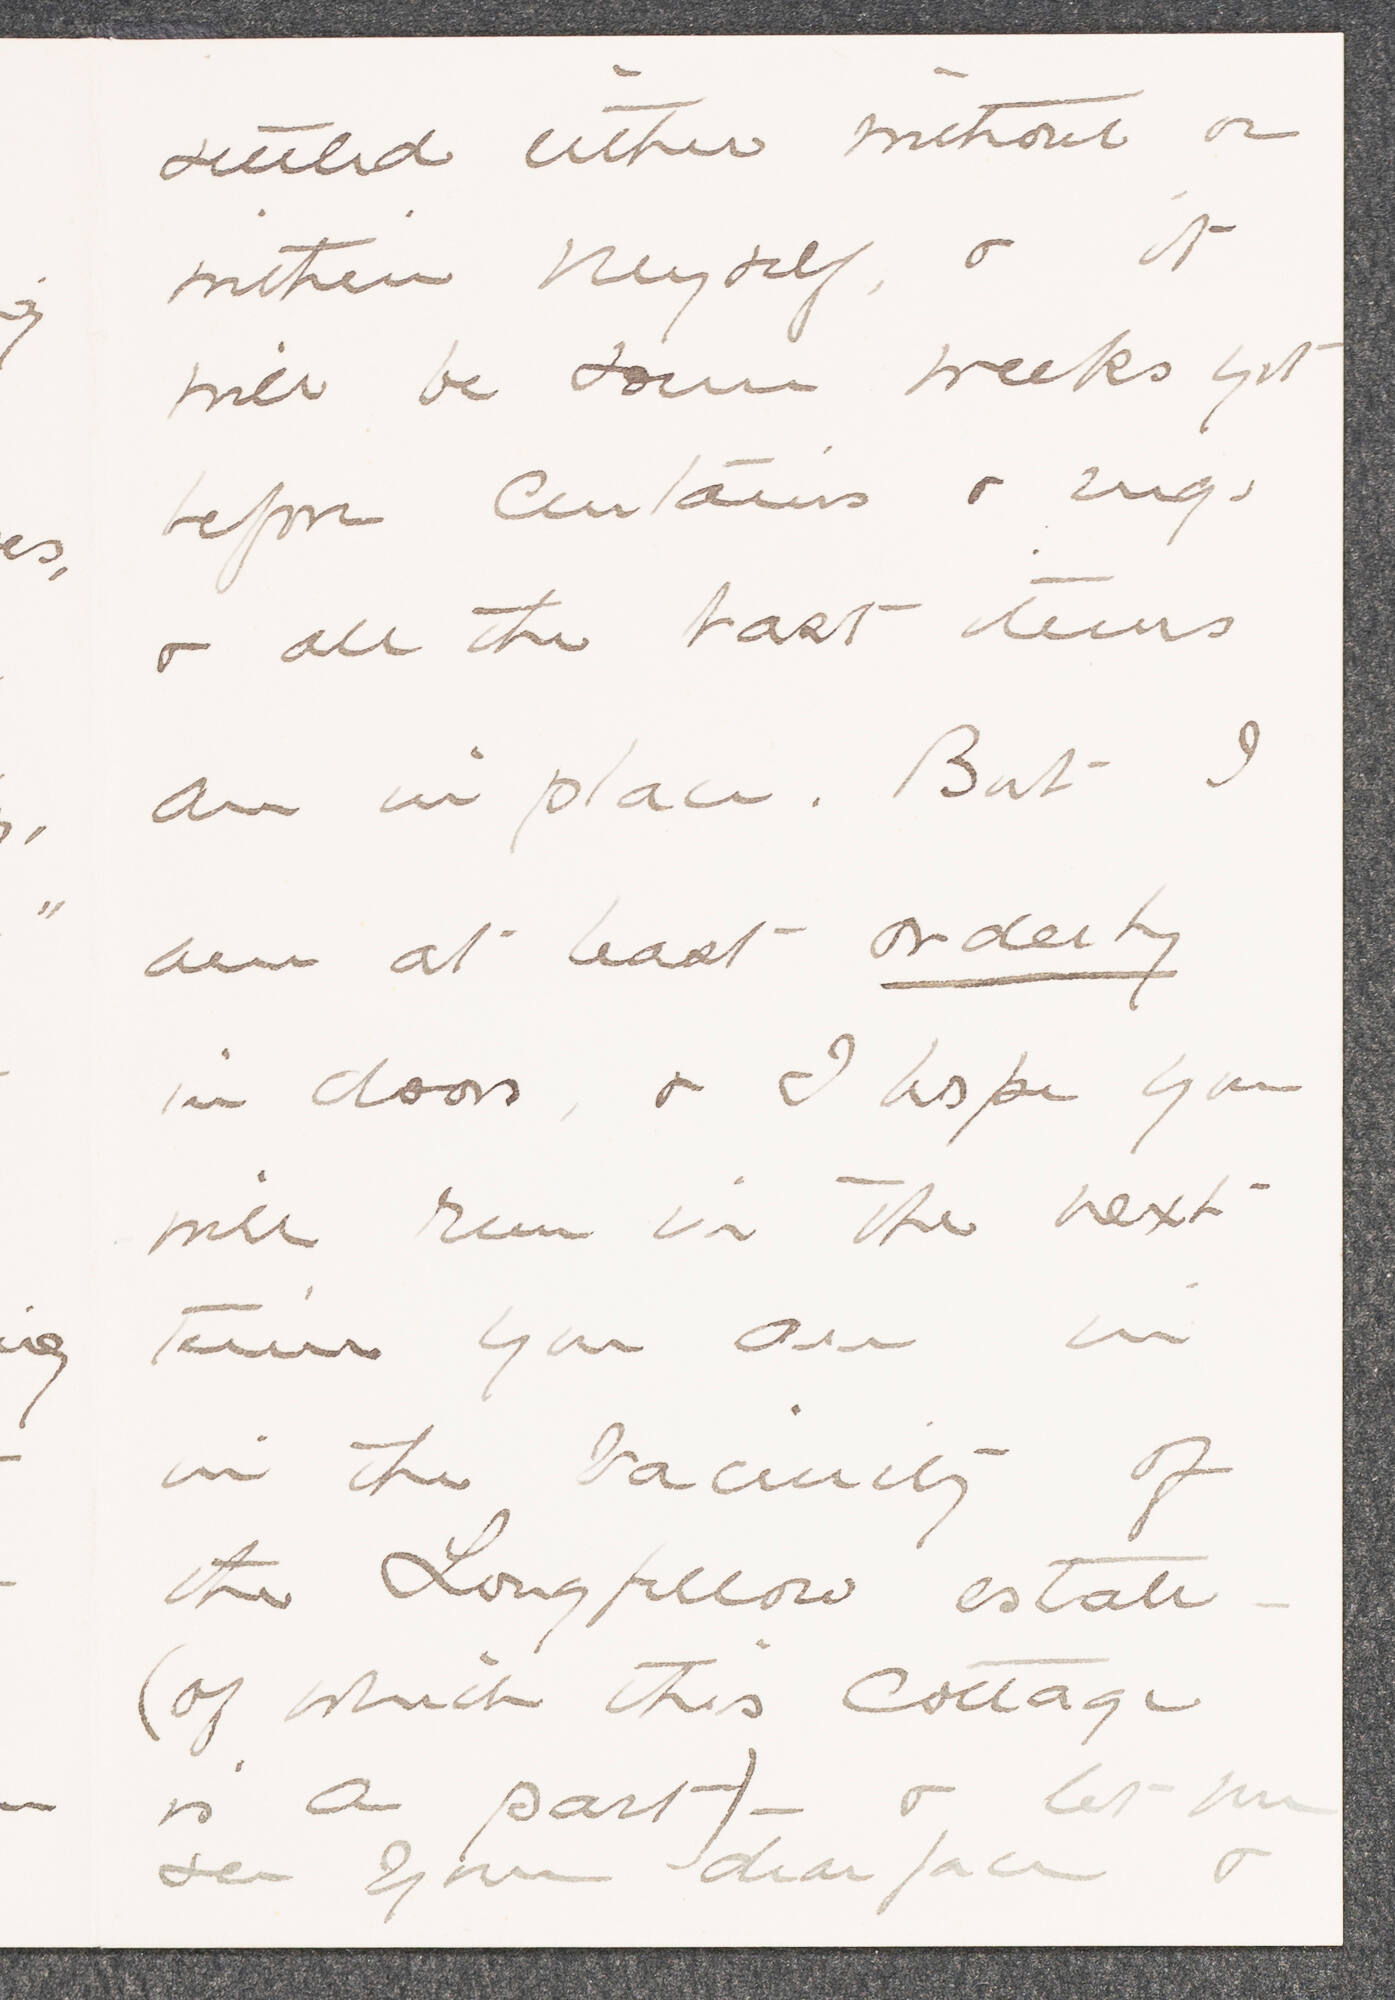 settled either without or
within myself, & it
will be some weeks yet
before Curtains & rugs
& all the last items
are in place. But I
am at least orderly
in doors, & I hope you
will run in the next
time you are in
in the vicinity of
the Longfellow estate –
(of which this Cottage
is a part) – & let me
see your dear face &